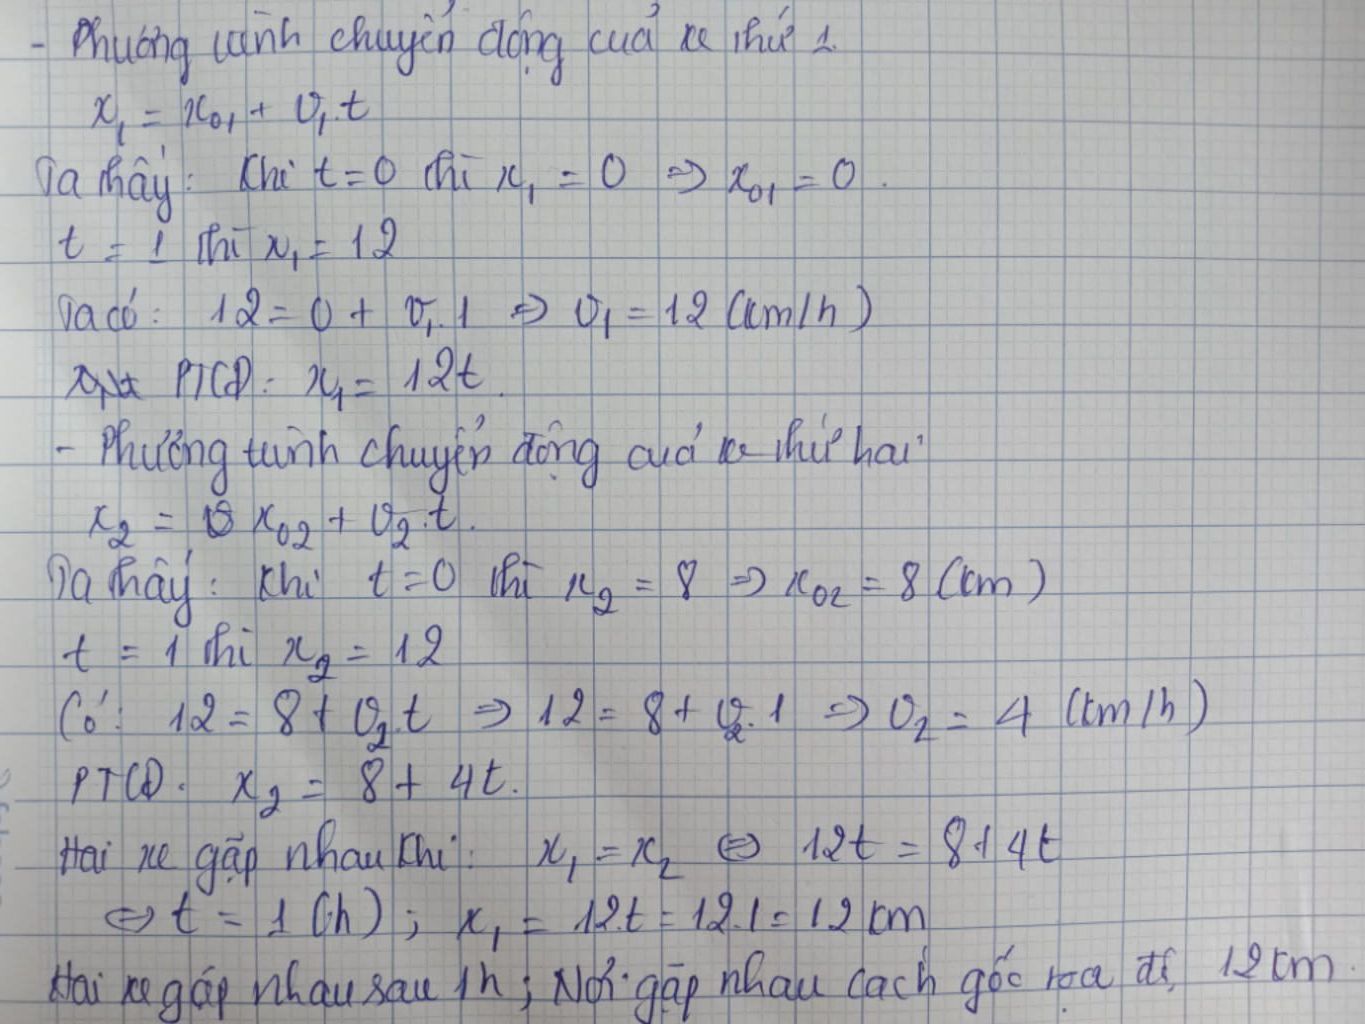 - Phương trình chuyển động của xe thứ 1.
x₁ = x₀₁ + v₁.t
Ta thấy: Khi t=0 thì x₁ = 0 => x₀₁ = 0.
t = 1 thì x₁ = 12
Ta có: 12 = 0 + v₁.1 => v₁ = 12 (km/h)
PTCĐ: x₁ = 12t.
- Phương trình chuyển động của xe thứ hai
x₂ = x₀₂ + v₂.t.
Ta thấy: Khi t=0 thì x₂ = 8 => x₀₂ = 8 (km)
t = 1 thì x₂ = 12
Có: 12 = 8 + v₂.t => 12 = 8 + v₂.1 => v₂ = 4 (km/h)
PTCĐ. x₂ = 8 + 4t.
Hai xe gặp nhau khi: x₁ = x₂ <=> 12t = 8 + 4t
<=> t = 1 (h) ; x₁ = 12.t = 12.1 = 12 km
Hai xe gặp nhau sau 1h ; Nơi gặp nhau cách gốc tọa độ 12 km.